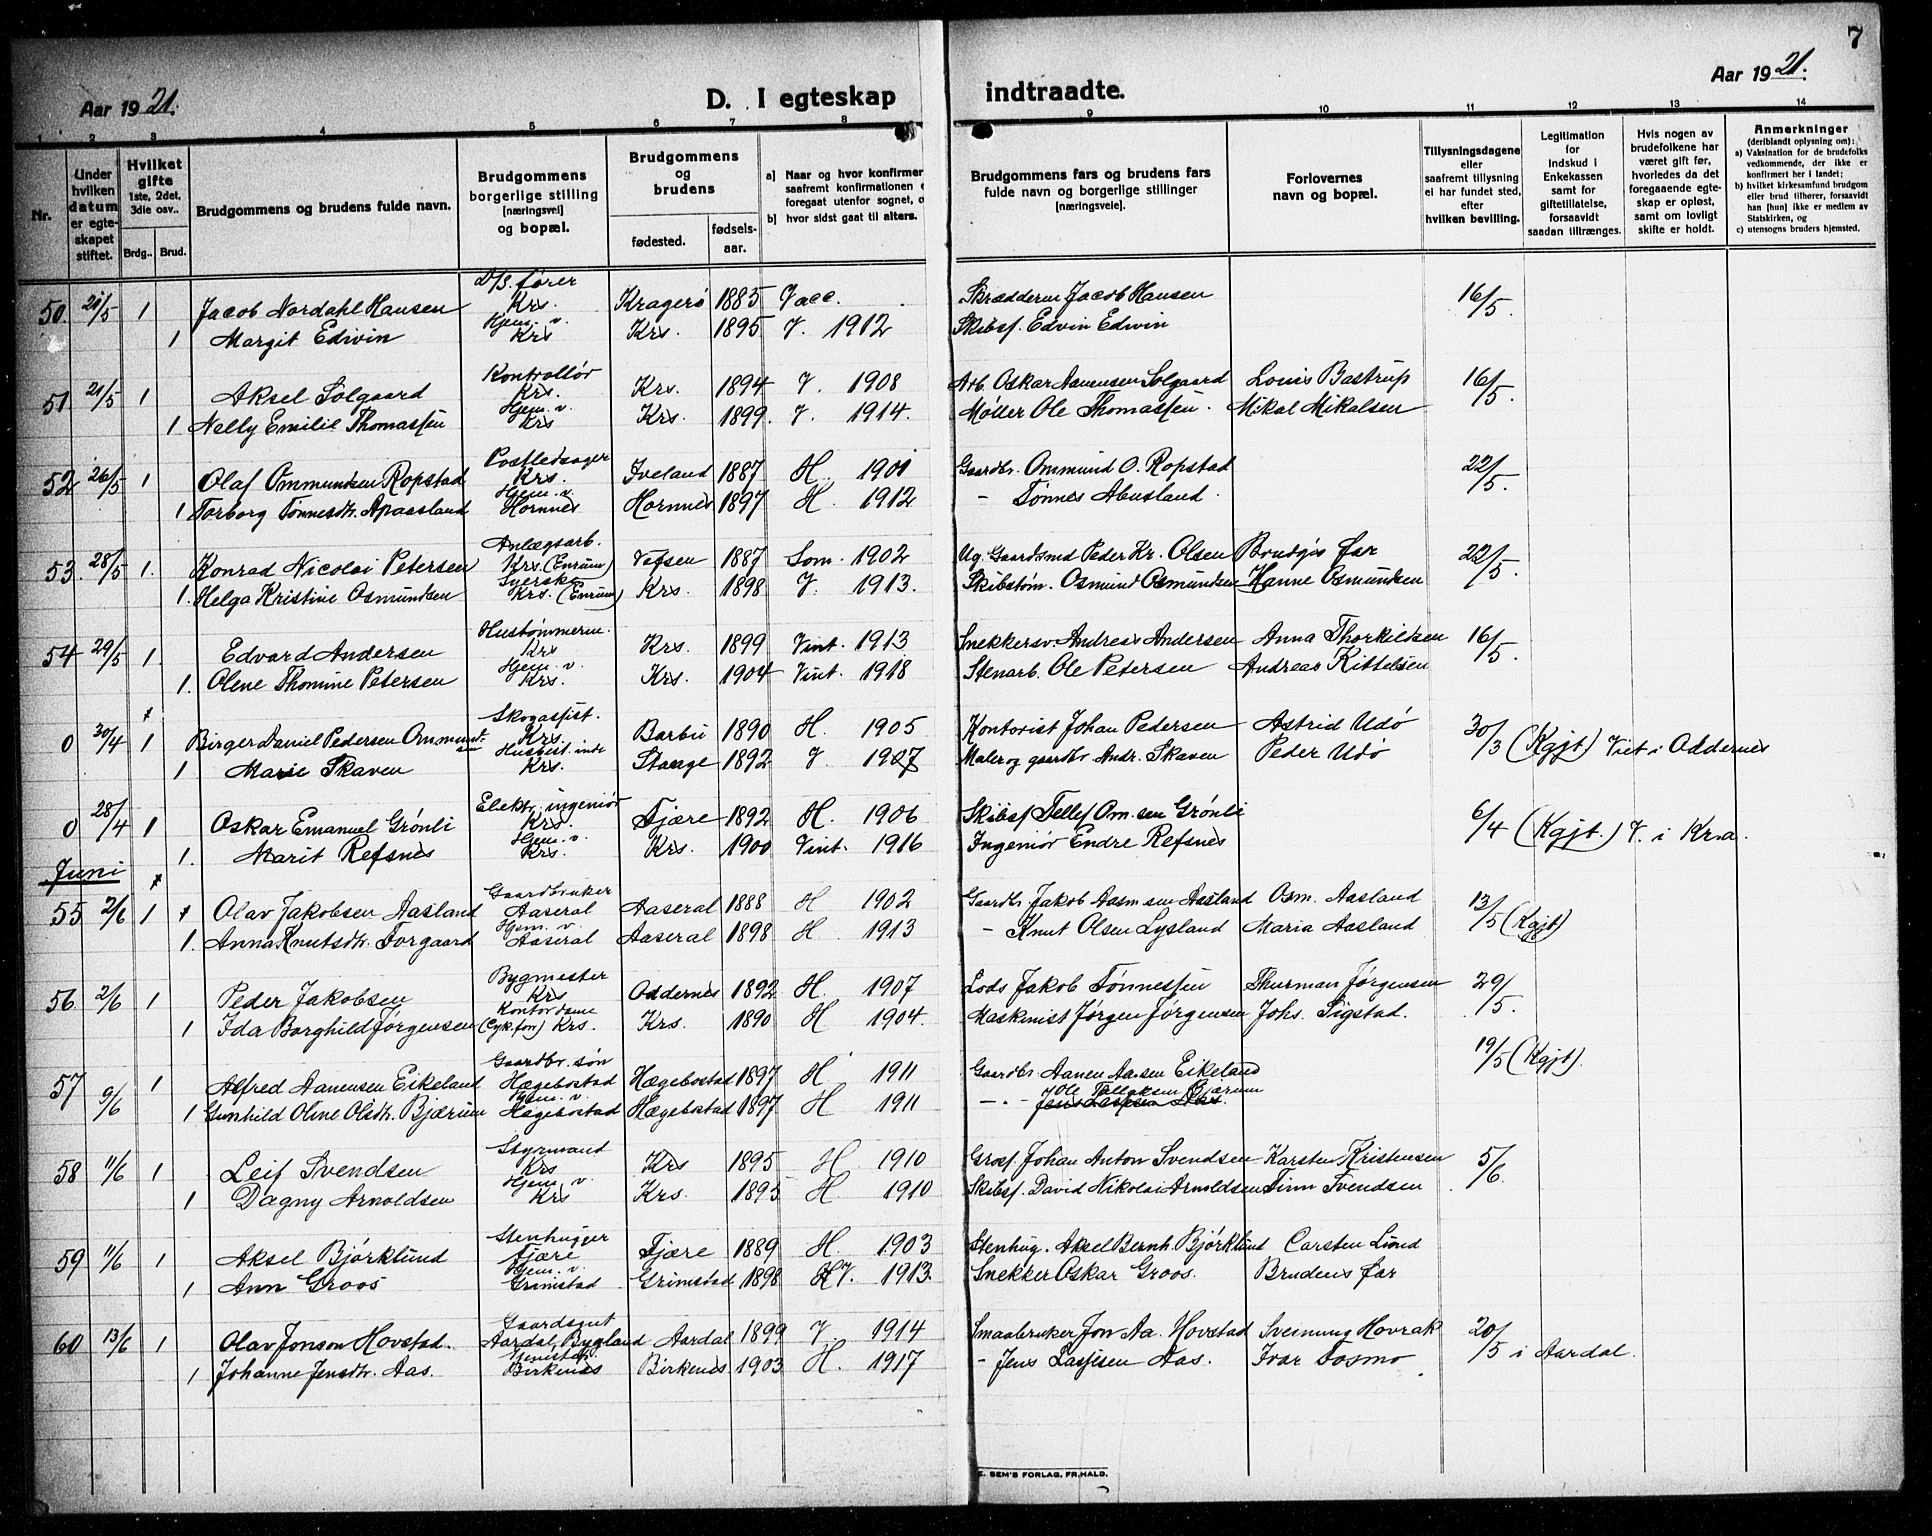 7
Aar 1921. D. I egteskap indtraadte. Aar 1921.
1 2 3 4 5 6 7 8 9 10 11 12 13 14
Nr.
Under hvilken datum er egteskapet stiftet.
Hvilket gifte 1ste, 2det, 3die osv..
Brdg.. Brud.
Brudgommens og brudens fulde navn.
Brudgommens borgerlige stilling [næringsvei] og bopæl.
Brudgommens og brudens
fødested. fødsels-aar.
a) Naar og hvor konfirmer
saafremt konfirmationen e
foregaat utenfor sognet, o
b) hvor sidst gaat til alters.
Brudgommens fars og brudens fars fulde navn og borgerlige stillinger [næringsveie].
Forlovernes navn og bopæl.
Tillysningsdagene eller saafremt tillysning ei har fundet sted, efter hvilken bevilling.
Legitimation for indskud i Enkekassen samt for giftetillatelse, forsaavidt saadan tiltrænges.
Hvis nogen av brudefolkene har været gift før, hvorledes da det foregaaende egteskap er opløst, samt om lovligt skifte er holdt.
Anmerkninger (deriblandt oplysning om):
a) Vaksination for de brudefolks vedkommende, der ikke er konfirmert her i landet;
b) hvilket kirkesamfund brudgom eller brud tilhører, forsaavidt han [hun] ikke er medlem av Statskirken, og
c) utensogns bruders hjemsted.
50 21/5 1 Jacob Nordahl Hansen D/S. fører Krs Kragerø 1885 Vacc. Skrædderm Jacob Hansen 16/5.
1 Margit Edwin Hjem. v. Krs Krs. 1895 V. 1912 Skibsf. Edvin Edwin
51 21/5 1 Aksel Solgaard Kontrollør Krs. Krs. 1894 V. 1908 Arb. Oskar Aanensen Solgaard Louis Bastrup 16/5.
1 Nelly Emilie Thomassen Hjem. v. Krs Krs. 1899. V. 1914. Møller Ole Thomassen. Mikal Mikalsen
52 26/5 1 Olaf Ommundsen Ropstad Postledsager Krs. Iveland 1887 H. 1901 Gaardbr. Ommund O. Ropstad 22/5.
1 Torborg Tønnesdtr. Apaasland Hjem. v. Hornnes Hornnes 1897 H. 1912 - Tønnes Abusland.
53. 28/5 1. Konrad Nicolai Petersen Anlægsarb. Krs. (Enrum) Vefsen 1887 Som. 1902 Ug. Gaardsmd Peder Kr. Olsen Brudgs far 22/5.
1. Helga Kristine Osmundsen Syerske Krs. (Enrum) Krs. 1898 V. 1913. Skibstøm. Osmund Osmundsen Hanne Osmundsen
54 29/5 1. Edvard Andersen Hustømmerm. Krs Krs. 1899 Vint. 1913 Snekkersv. Andreas Andersen Anna Thorkildsen 16/5.
1. Olene Thomine Petersen Hjem. v. Krs. Krs. 1904 Vint. 1918 Stenarb. Ole Petersen Andreas Kittelsen
0 30/4 1 Birger Daniel Pedersen Ommundsen Skogassist. Krs. Barbu 1890 H. 1905 Kontorist Johan Pedersen Astrid Udø 30/3 (Kgjt) Viet i Oddernes
1 Marie Skaven Husbest.inde Krs. Stange 1892 V 1907 Maler og gaardbr. Andr. Skaven Peder Udø
0 28/4 1 Oskar Emanuel Grønli Elektr. ingeniør Krs. Fjære 1892 H. 1906 Skibsf Tellef Om.sen Grønli 6/4 (Kgjt.) V. i Kr.a.
1. Marit Refsnes Hjem. v. Krs. Krs. 1900 Vint. 1916 Ingeniør Endre Refsnes
Juni
55 2/6 1 Olav Jakobsen Aasland Gaardbruker Aaseral Aaseral 1888 H 1902 Gaardbr Jakob Aasm.sen Aasland Osm. Aasland 13/5 (Kgjt)
1. Anna Knutsdtr. Torgaard Hjem. v. Aaseral Aaseral 1898 H 1913 - Knut Olsen Lysland Maria Aasland
56 2/6 1 Peder Jakobsen Bygmester Krs Oddernes 1892 H. 1907 Lods Jakob Tønnessen Thurman Jørgensen 29/5.
1 Ida Borghild Jørgensen Kontordame (Cyk.for) Krs. Krs. 1890 H 1904. Maskinist Jørgen Jørgensen Johs. Sigstad.
57 9/6 1 Alfred Aanensen Eikeland Gaardbr. søn Hægebostad Hægebostad 1897 H 1911 Gaardbr Aanen Aa.sen Eikeland 19/5 (Kgjt).
1 Gunhild Oline Olsdtr. Bjærum Hjem. v. Hægebostad Hægebostad 1897 H 1911 - Ole Tellaksen Bjærum
58 11/6 1 Leif Svendsen Styrmand Krs Krs 1895 H. 1910 Gross. Johan Anton Svendsen Karsten Kristensen 5/6.
1 Dagny Arnoldsen Hjem. v. Krs Krs. 1895 H 1910 Skibsf. David Nikolai Arnoldsen Finn Svendsen
59 11/6 1 Aksel Bjørklund Stenhugger Fjære Fjære 1889 H. 1903 Stenhug. Aksel Bernh. Bjørklund Carsten Lund
1 Ann Groos Hjem. v. Grimstad Grimstad 1898 V. 1913. Snekker Oskar Groos. Brudens far
60 13/6 1 Olav Jonson Hovstad. Gaardsgut Aardal, Bygland Aardal 1899 V. 1914 Smaabruker Jon Aa. Hovstad Sveinung Hovrak 20/5 i Aardal.
1 Johanne Jensdtr. Aas. Birkenes Birkenes 1903 H. 1917 - Jens Lassesen Aas. Ivar Tosmo
E. SEM'S FORLAG, FR.HALD.